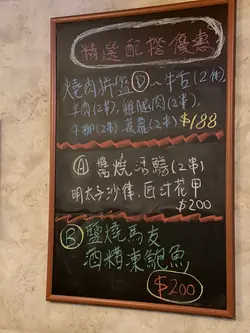 精選配搭優惠
燒肉拼盤Ⓓ～牛舌(2件),
羊肉(2串), 雞腿肉(2串),
牛柳(2串), 菠蘿(2串) $188
Ⓐ 醬燒活鱔(2串)
明太子沙律, 匠汁花甲
$200
Ⓑ 鹽燒馬友
酒糟凍鮑魚
$200